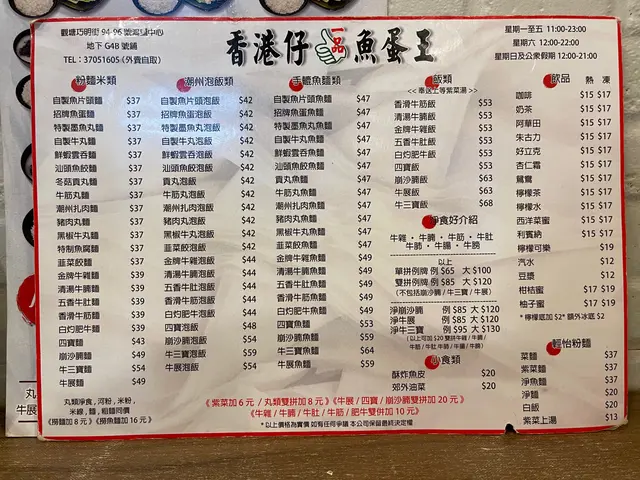 觀塘巧明街 94-96 號鴻圖中心
地下 G4B 號鋪
TEL：37051605 (外賣自取)
香港仔 一品 魚蛋王
星期一至五 11:00-23:00
星期六 12:00-22:00
星期日及公衆假期 12:00-21:00
粉麵米類
自製魚片頭麵 $37
招牌魚蛋麵 $37
特製墨魚丸麵 $37
自製牛丸麵 $37
鮮蝦雲吞麵 $37
汕頭魚餃麵 $37
冬菇貢丸麵 $37
牛筋丸麵 $37
潮州扎肉麵 $37
豬肉丸麵 $37
黑椒牛丸麵 $37
特制魚腐麵 $37
韮菜餃麵 $37
金牌牛雜麵 $39
清湯牛腩麵 $39
五香牛肚麵 $39
香滑牛筋麵 $39
白灼肥牛麵 $39
四寶麵 $43
崩沙腩麵 $49
牛三寶麵 $49
牛展麵 $49
潮州泡飯類
自製魚片頭泡飯 $42
招牌魚蛋泡飯 $42
特製墨魚丸泡飯 $42
自製牛丸泡飯 $42
鮮蝦雲吞泡飯 $42
汕頭魚餃泡飯 $42
貢丸泡飯 $42
牛筋丸泡飯 $42
潮州扎肉泡飯 $42
豬肉丸泡飯 $42
黑椒牛丸泡飯 $42
韮菜餃泡飯 $42
金牌牛雜泡飯 $44
清湯牛腩泡飯 $44
五香牛肚泡飯 $44
香滑牛筋泡飯 $44
白灼肥牛泡飯 $44
四寶泡飯 $48
崩沙腩泡飯 $54
牛三寶泡飯 $54
牛展泡飯 $54
手轆魚麵類
自製魚片頭魚麵 $47
招牌魚蛋魚麵 $47
特製墨魚丸魚麵 $47
自製牛丸魚麵 $47
鮮蝦雲吞魚麵 $47
汕頭魚餃魚麵 $47
貢丸魚麵 $47
牛筋丸魚麵 $47
潮州扎肉魚麵 $47
豬肉丸魚麵 $47
黑椒牛丸魚麵 $47
韮菜餃魚麵 $47
金牌牛雜魚麵 $49
清湯牛腩魚麵 $49
五香牛肚魚麵 $49
香滑牛筋魚麵 $49
白灼肥牛魚麵 $49
四寶魚麵 $53
崩沙腩魚麵 $59
牛三寶魚麵 $59
牛展魚麵 $64
飯類
<< 奉送上等紫菜湯 >>
香滑牛筋飯 $53
清湯牛腩飯 $53
金牌牛雜飯 $53
五香牛肚飯 $53
白灼肥牛飯 $53
四寶飯 $53
崩沙腩飯 $63
牛展飯 $63
牛三寶飯 $68
淨食好介紹
牛雜・牛腩・牛筋・牛肚
牛肺・牛腸・牛膀
以上
單拼例牌 例 $65 大 $100
雙拼例牌 例 $85 大 $120
(不包括崩沙腩 / 牛三寶 / 牛展)
淨崩沙腩 例 $85 大 $120
淨牛展 例 $85 大 $120
淨牛三寶 例 $95 大 $130
小食類
酥炸魚皮 $20
郊外油菜 $20
飲品 熱 凍
咖啡 $15 $17
奶茶 $15 $17
阿華田 $15 $17
朱古力 $15 $17
好立克 $15 $17
杏仁霜 $15 $17
鴛鴦 $15 $17
檸檬茶 $15 $17
檸檬水 $15 $17
西洋菜蜜 $15 $17
利賓納 $15 $17
檸檬可樂 $19
汽水 $12
豆漿 $12
柑桔蜜 $17 $19
柚子蜜 $17 $19
* 檸檬底加 $2* 額外冰底 $2
輕怡粉麵
菜麵 $37
紫菜麵 $37
淨魚麵 $37
淨麵 $20
白飯 $20
紫菜上湯 $13
丸類淨食，河粉，米粉，
米線，麵，粗麵同價
《撈麵加 8 元》《撈魚麵加 16 元》
《紫菜加 6 元 / 丸類雙拼加 8 元》《牛展 / 四寶 / 崩沙腩雙拼加 20 元》
《牛雜 / 牛腩 / 牛肚 / 牛筋 / 肥牛雙併加 10 元》
* 以上價格為實價 如有任何爭議 本公司保留最終決定權